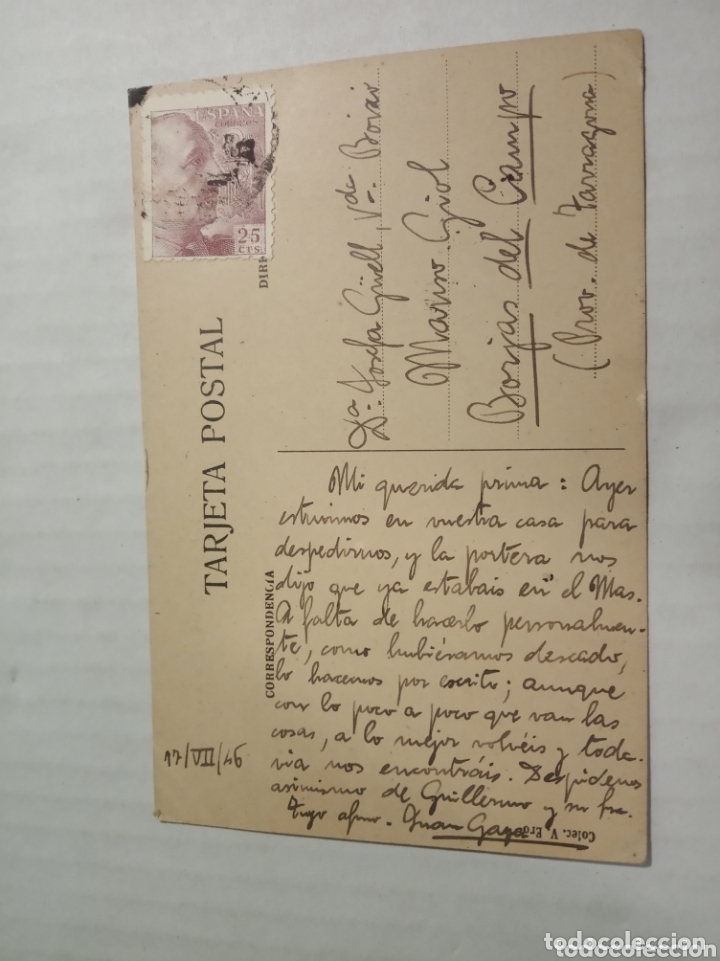 ESPAÑA
CORREOS
25
CTS.
TARJETA POSTAL
DIRE
Dª. Josefa Güell, Vda. Boixó
Marino Giol
Borjas del Campo
(Prov. de Tarragona)
CORRESPONDENCIA
17/VII/46
Mi querida prima: Ayer
estuvimos en vuestra casa para
despedirnos, y la portera nos
dijo que ya estabais en el Mas.
A falta de hacerlo personalmen-
te, como hubiéramos deseado,
lo hacemos por escrito; aunque
con lo poco a poco que van las
cosas, a lo mejor volvéis y toda-
via nos encontráis. Despídenos
asimismo de Guillermo y su fra.
Tuyo afmo. Juan Gaya
Colec. V. Ero
todocoleccion
todocoleccion